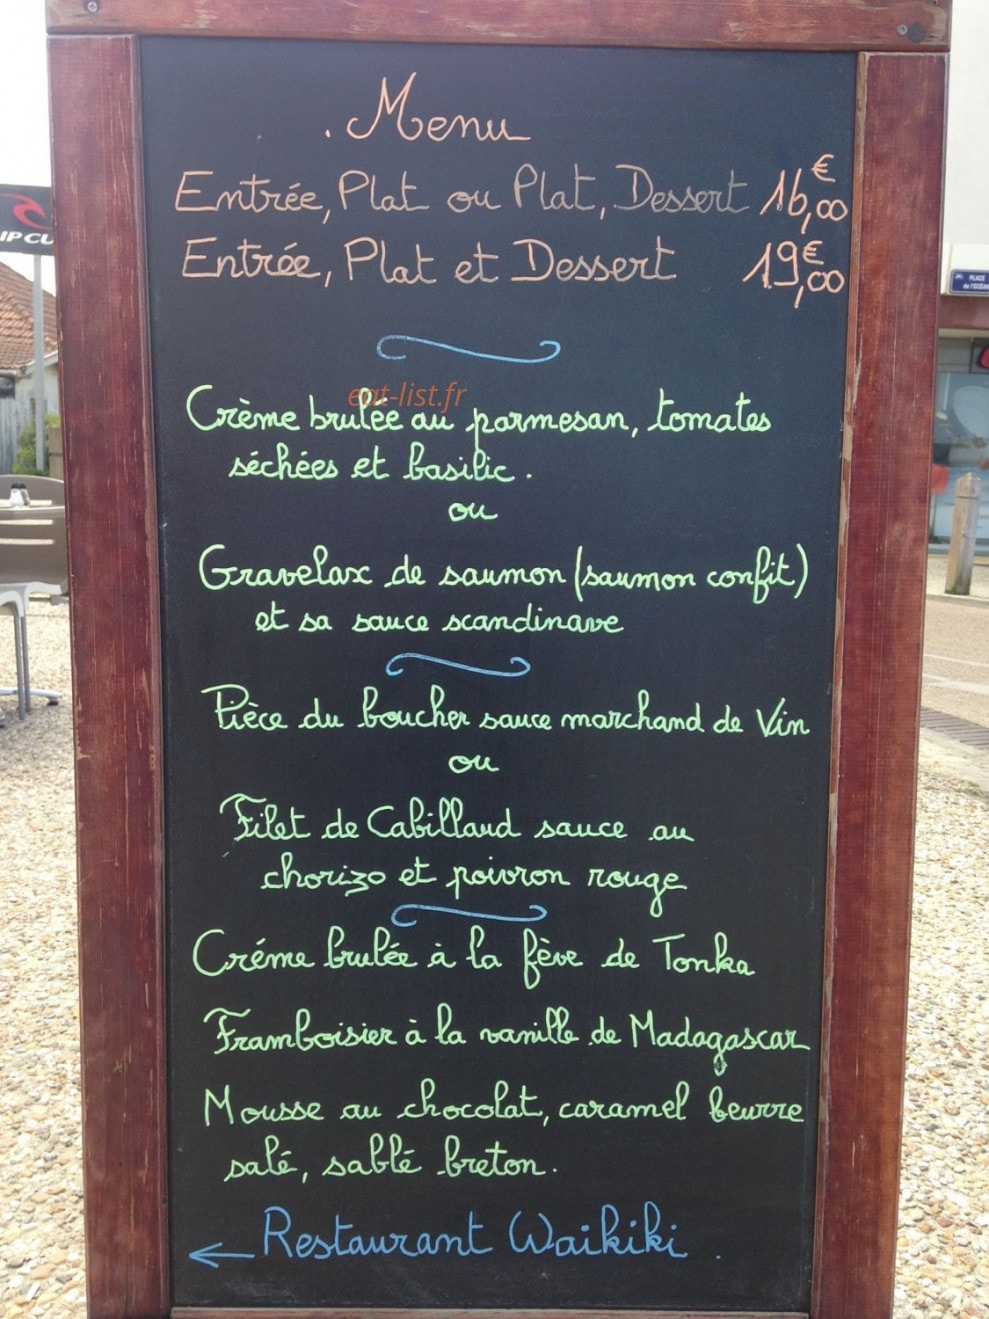 . Menu
Entrée, Plat ou Plat, Dessert 16,00€
Entrée, Plat et Dessert 19,00€
eat-list.fr
Crème brulée au parmesan, tomates
séchées et basilic.
ou
Gravelax de saumon (saumon confit)
et sa sauce scandinave
Pièce du boucher sauce marchand de Vin
ou
Filet de Cabillaud sauce au
chorizo et poivron rouge
Créme brulée à la fève de Tonka
Framboisier à la vanille de Madagascar
Mousse au chocolat, caramel beurre
salé, sablé breton.
← Restaurant Waikiki .
IP CU
PLACE
de l'OCÉAN